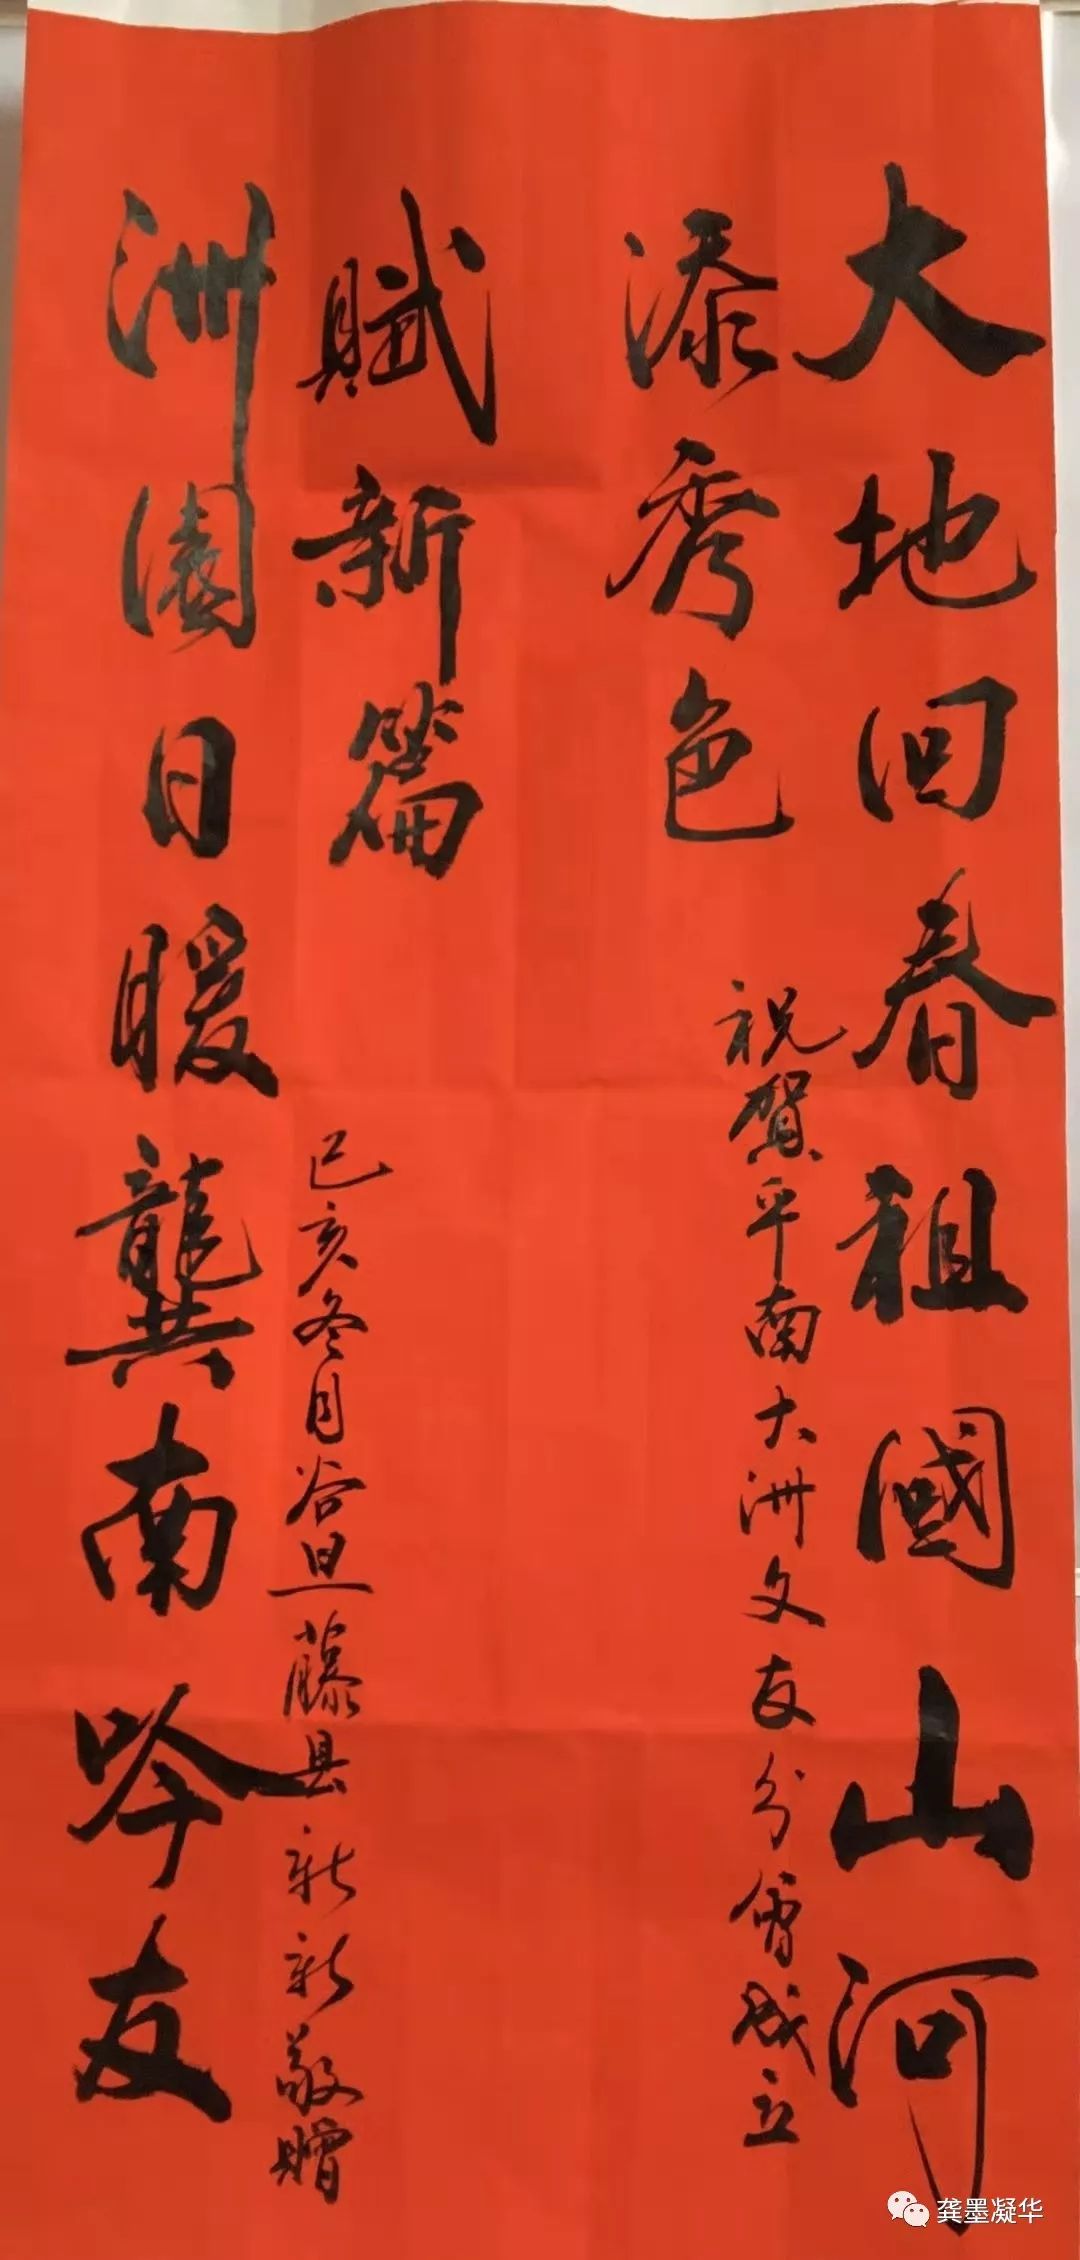 大地回春祖國山河
添秀色
祝賀平南大洲文友分會成立
洲園日暖龔南吟友
賦新篇
己亥冬月谷旦藤县新新敬贈
龚墨凝华